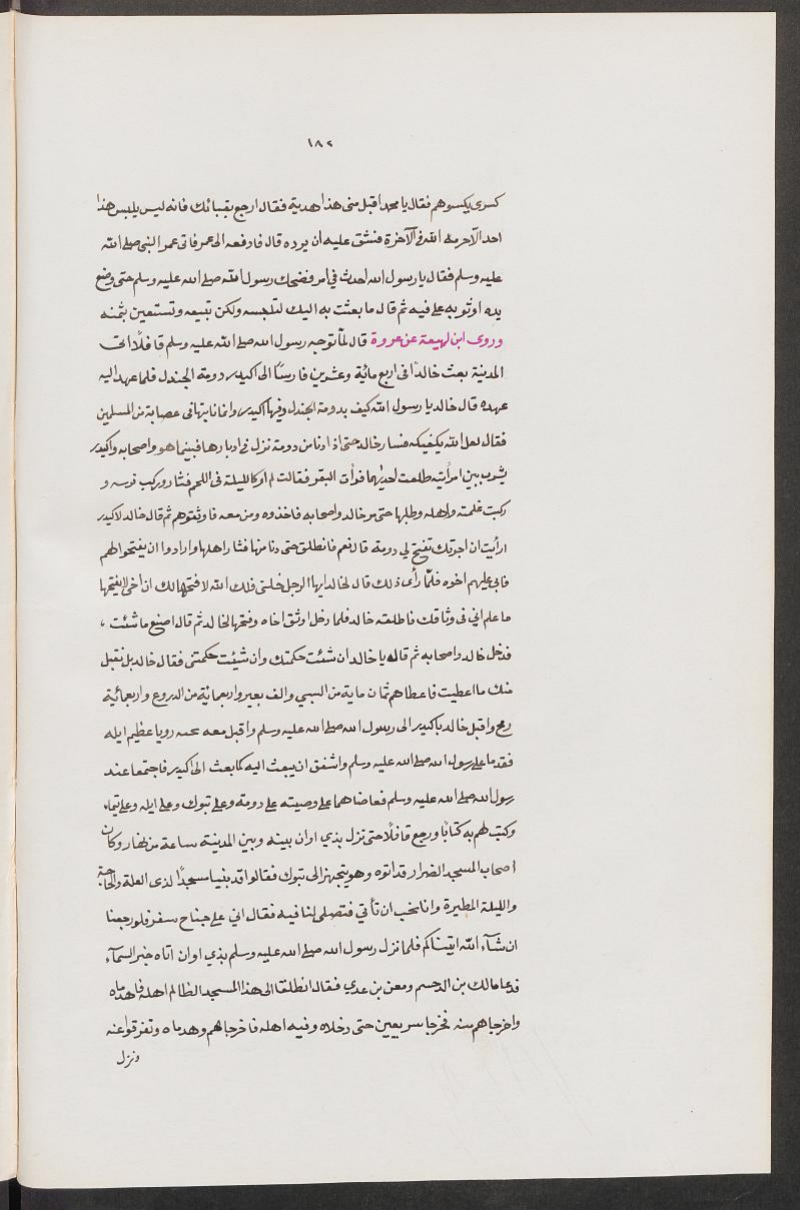 ١٨٢
كسرى يكسوهم فقال يا محمد اقبل منى هذا هدية فقال ارجع بقبائك فانه ليس يلبس هذا
احد الاحرمه الله فى الآخرة فشق عليه ان يرده قال فادفعه الى عمر فاتى عمر النبى صلى الله
عليه وسلم فقال يا رسول الله احدث في امر فضحك رسول الله صلى الله عليه وسلم حتى وضع
يده او ثوبه على فيه ثم قال ما بعثت به اليك لتلبسه ولكن تبيعه وتستعين بثمنه
وروى ابن لهيعة عن عروة قال لما توجه رسول الله صلى الله عليه وسلم قافلا الى
المدينة بعث خالدا فى اربع مائية وعشرين فارسا الى اكيدر دومة الجندل فلما عهد اليه
عهده قال خالد يا رسول الله كيف بدومة الجندل وفيها اكيدر وانما ناتيها فى عصابة من المسلمين
فقال لعل الله يكفيكه فسار خالد حتى اذا دنا من دومة نزل فى ادبارها فبينما هو واصحابه واكيدر
يشرب بين امرأتيه طلعت احديهما فرأت البقر فقالت لم ار كالليلة فى اللحم فثار وركب فرسه و
ركبت غلمته واهله وطلبها حتى مر خالد واصحابه فاخذوه ومن معه فاوثقوهم ثم قال خالد لاكيدر
ارأيت ان اجرتك تفتح لي دومة قال نعم فانطلق حتى دنا منها فثار اهلها وارادوا ان يفتحوا لهم
فابى عليهم اخوه فلما رأى ذلك قال لخالد ايها الرجل خلنى فلك الله لافتحها لك ان اخى لا يفتحها
ما علم اني فى وثاقك فاطلقه خالد فلما دخل اوثق اخاه وفتحها لخالد ثم قال اصنع ما شئت ،
فدخل خالد واصحابه ثم قال يا خالد ان شئت حكمتك وان شيئت حكمتنى فقال خالد بل نقبل
منك ما اعطيت فاعطاهم ثمان ماية من السبي والف بعير واربعمائية من الدروع واربعمائية
رمح واقبل خالد باكيدر الى رسول الله صلى الله عليه وسلم واقبل معه يحنه رويا عظيم ايله
فقدما على رسول الله صلى الله عليه وسلم واشفق ان يبعث اليه كما بعث الى اكيدر فاجتمعا عند
رسول الله صلى الله عليه وسلم فقاضاهما على وصيته على دومة وعلى تبوك وعلى ايله وعلى تيماء
وكتب لهم به كتابا ورجع قافلا حتى نزل بذي اوان بينه وبين المدينة ساعة من نهار وكان
اصحاب المسجد الضرار قد اتوه وهو يتجهز الى تبوك فقالوا قد بنينا مسجدا لذى العلة والحاجة
والليلة المطيرة وانا نحب ان تأتي فتصلى لنا فيه فقال اني على جناح سفر فلو رجعنا
ان شآء الله اتيناكم فلما نزل رسول الله صلى الله عليه وسلم بذي اوان اتاه خبر السمآء
فدعا مالك بن الدخسم ومعن بن عدي فقال انطلقا الى هذا المسجد الظالم اهله فاهدماه
واخرجاهم منه فخرجا سريعين حتى دخلاه وفيه اهله فاخرجاهم وهدماه وتفرقوا عنه
ونزل